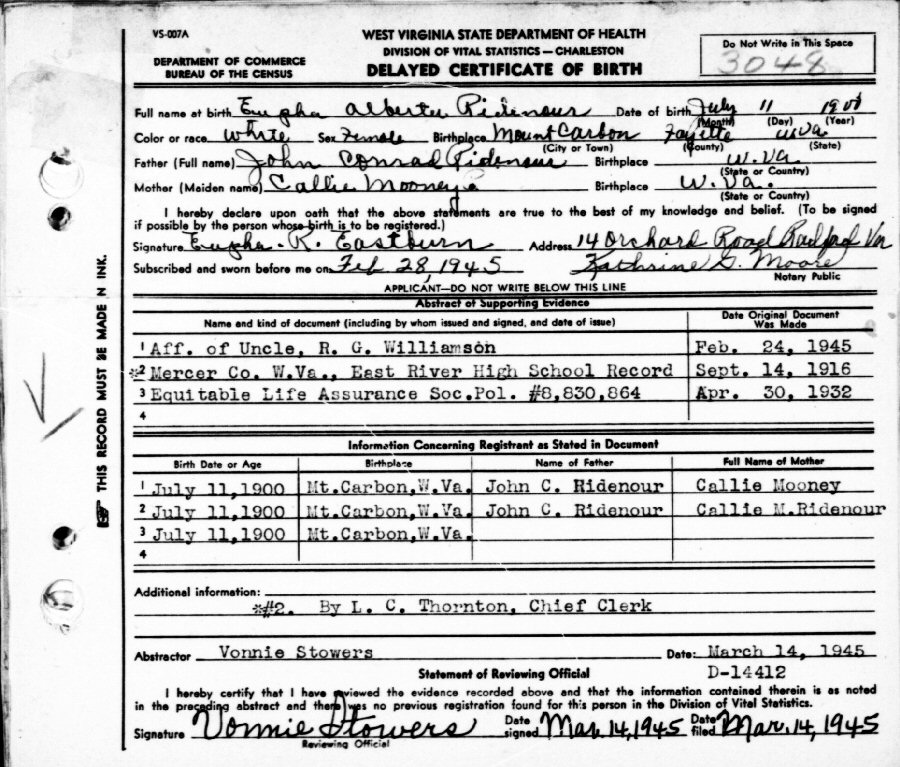 VS-007A
WEST VIRGINIA STATE DEPARTMENT OF HEALTH
DIVISION OF VITAL STATISTICS—CHARLESTON
DEPARTMENT OF COMMERCE
BUREAU OF THE CENSUS
DELAYED CERTIFICATE OF BIRTH
Do Not Write in This Space
3048
Full name at birth Eupha Alberta Ridenour Date of birth July 11 1900
(Month) (Day) (Year)
Color or race White Sex Female Birthplace Mount Carbon Fayette W Va
(City or Town) (County) (State)
Father (Full name) John Conrad Ridenour Birthplace W. Va.
(State or Country)
Mother (Maiden name) Callie Mooney Birthplace W. Va.
(State or Country)
I hereby declare upon oath that the above statements are true to the best of my knowledge and belief. (To be signed
if possible by the person whose birth is to be registered.)
Signature Eupha. R. Eastburn Address 14 Orchard Road Radford Va
Subscribed and sworn before me on Feb 28, 1945 Kathrine G. Moore
Notary Public
APPLICANT—DO NOT WRITE BELOW THIS LINE
Abstract of Supporting Evidence
Name and kind of document (including by whom issued and signed, and date of issue) Date Original Document
Was Made
1 Aff. of Uncle, R. G. Williamson Feb. 24, 1945
*2 Mercer Co. W.Va., East River High School Record Sept. 14, 1916
3 Equitable Life Assurance Soc.Pol. #8,830,864 Apr. 30, 1932
4
Information Concerning Registrant as Stated in Document
Birth Date or Age Birthplace Name of Father Full Name of Mother
1 July 11,1900 Mt.Carbon,W.Va. John C. Ridenour Callie Mooney
2 July 11,1900 Mt.Carbon,W.Va. John C. Ridenour Callie M.Ridenour
3 July 11,1900 Mt.Carbon,W.Va.
4
Additional information:
*#2. By L. C. Thornton, Chief Clerk
Abstractor Vonnie Stowers Date: March 14, 1945
Statement of Reviewing Official D-14412
I hereby certify that I have reviewed the evidence recorded above and that the information contained therein is as noted
in the preceding abstract and there was no previous registration found for this person in the Division of Vital Statistics.
Signature Vonnie Stowers Date signed Mar. 14, 1945 Date filed Mar. 14, 1945
Reviewing Official
THIS RECORD MUST BE MADE N INK.